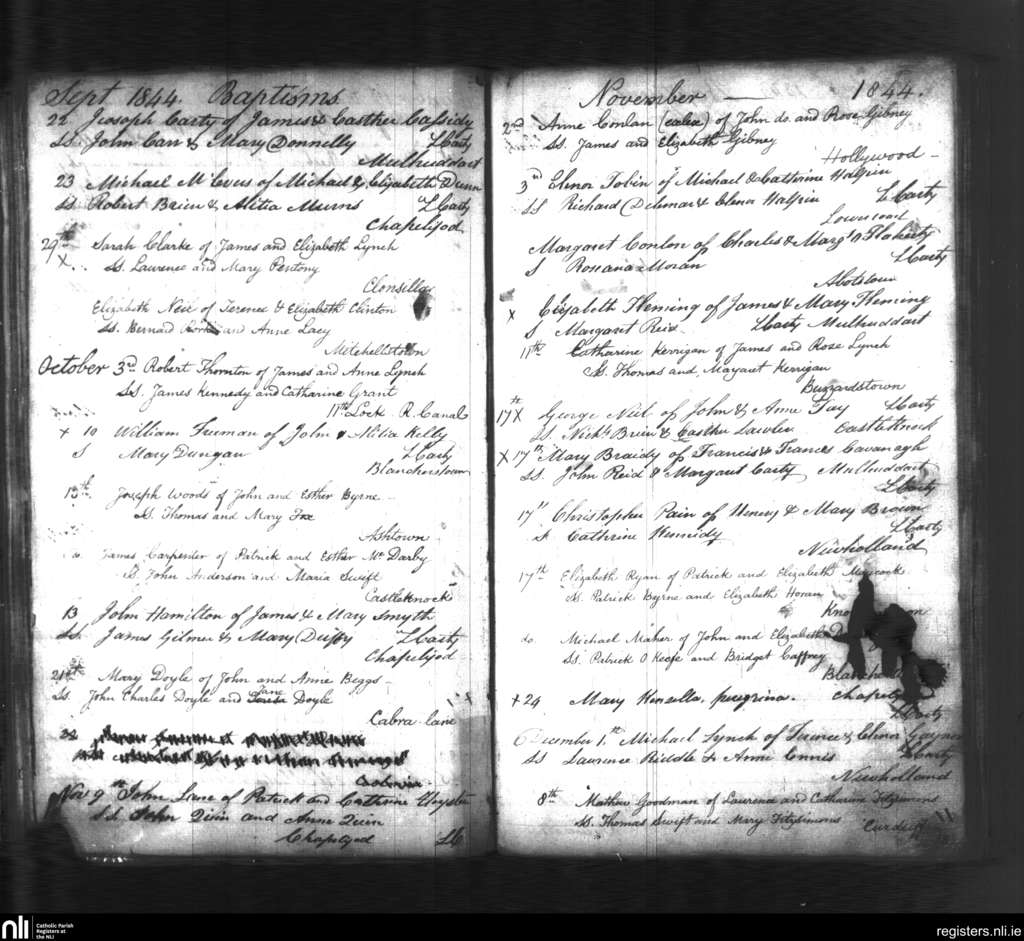 Sept 1844. Baptisms
22 Joosoph Carty of James & Easther Cassidy
SS. John Carr & Mary Donnelly LCarty
Mulhuddart
23 Michael McEvers of Michael & Elizabeth Dunn
SS Robert Brien & Alitia Murns LCarty
Chapelizod
29th Sarah Clarke of James and Elizabeth Lynch
X.. SS. Laurence and Mary Pentony
Clonsilla
Elizabeth Neil of Terence & Elizabeth Clinton
SS. Bernard and Anne Lacy
Mitchellstown
October 3rd Robert Thornton of James and Anne Lynch
SS. James Kennedy and Catharine Grant
11th Lock R. Canal
+ 10 William Freeman of John & Alitia Kelly
S Mary Dungan LCarty
Blancherstown
13th. Joseph Woods of John and Esther Byrne
SS. Thomas and Mary Fox
Ashtown
do. James Carpenter of Patrick and Esther McDarby
SS. John Anderson and Maria Swift
Castleknock
13 John Hamilton of James & Mary Smyth
SS. James Gilmer & Mary Duffy LCarty
Chapelizod
21st Mary Doyle of John and Anne Beggs
Jane
SS. John Charles Doyle and Teresa Doyle
Cabra-lane
Nov 9th John Lane of Patrick and Cathrine Cloyster
SS. John Quin and Anne Quin
Chapelizod LC
November — 1844.
2nd Anne Conlan (ealea) of John do. and Rose Gibney
SS. James and Elizabeth Gibney
Hollywood
3rd Elenor Tobin of Michael & Catherine Halpin
SS Richard Delmar & Elenor Halpin LCarty
Lowerroad
Margaret Conlon of Charles & Margt O Flaherty
S Roseanna Moran LCarty
Abotstown
X Elizabeth Fleming of James & Mary Fleming
S Margaret Reid LCarty Mulhuddart
11th Catharine Kerrigan of James and Rose Lynch
SS. Thomas and Margaret Kerrigan
Buzzardstown
17th X George Neil of John & Anne Fay LCarty
SS. Nichs Brien & Easther Lawler CastleKnock
X 17th Mary Braidy of Francis & Frances Cavanagh
SS. John Reid & Margaret Carty Mulhuddart
LCarty
17th Christopher Pain of Henery & Mary Brown
S Cathrine Kennidy LCarty
Newholland
17th Elizabeth Ryan of Patrick and Elizabeth Maycock
SS. Patrick Byrne and Elizabeth Horan
do. Michael Maher of John and Elizabeth
SS. Patrick O Keefe and Bridget Caffrey
+ 24 Mary Kenzella, peregrina.
LCarty
December 1st Michael Lynch of Terence & Elenor Gaynor
SS Laurence Riddle & Anne Ennis LCarty
Newholland
8th Mathew Goodman of Laurence and Catharine Fitzsimons
SS. Thomas Swift and Mary Fitzsimons
nli
Catholic Parish
Registers at
the NLI
registers.nli.ie